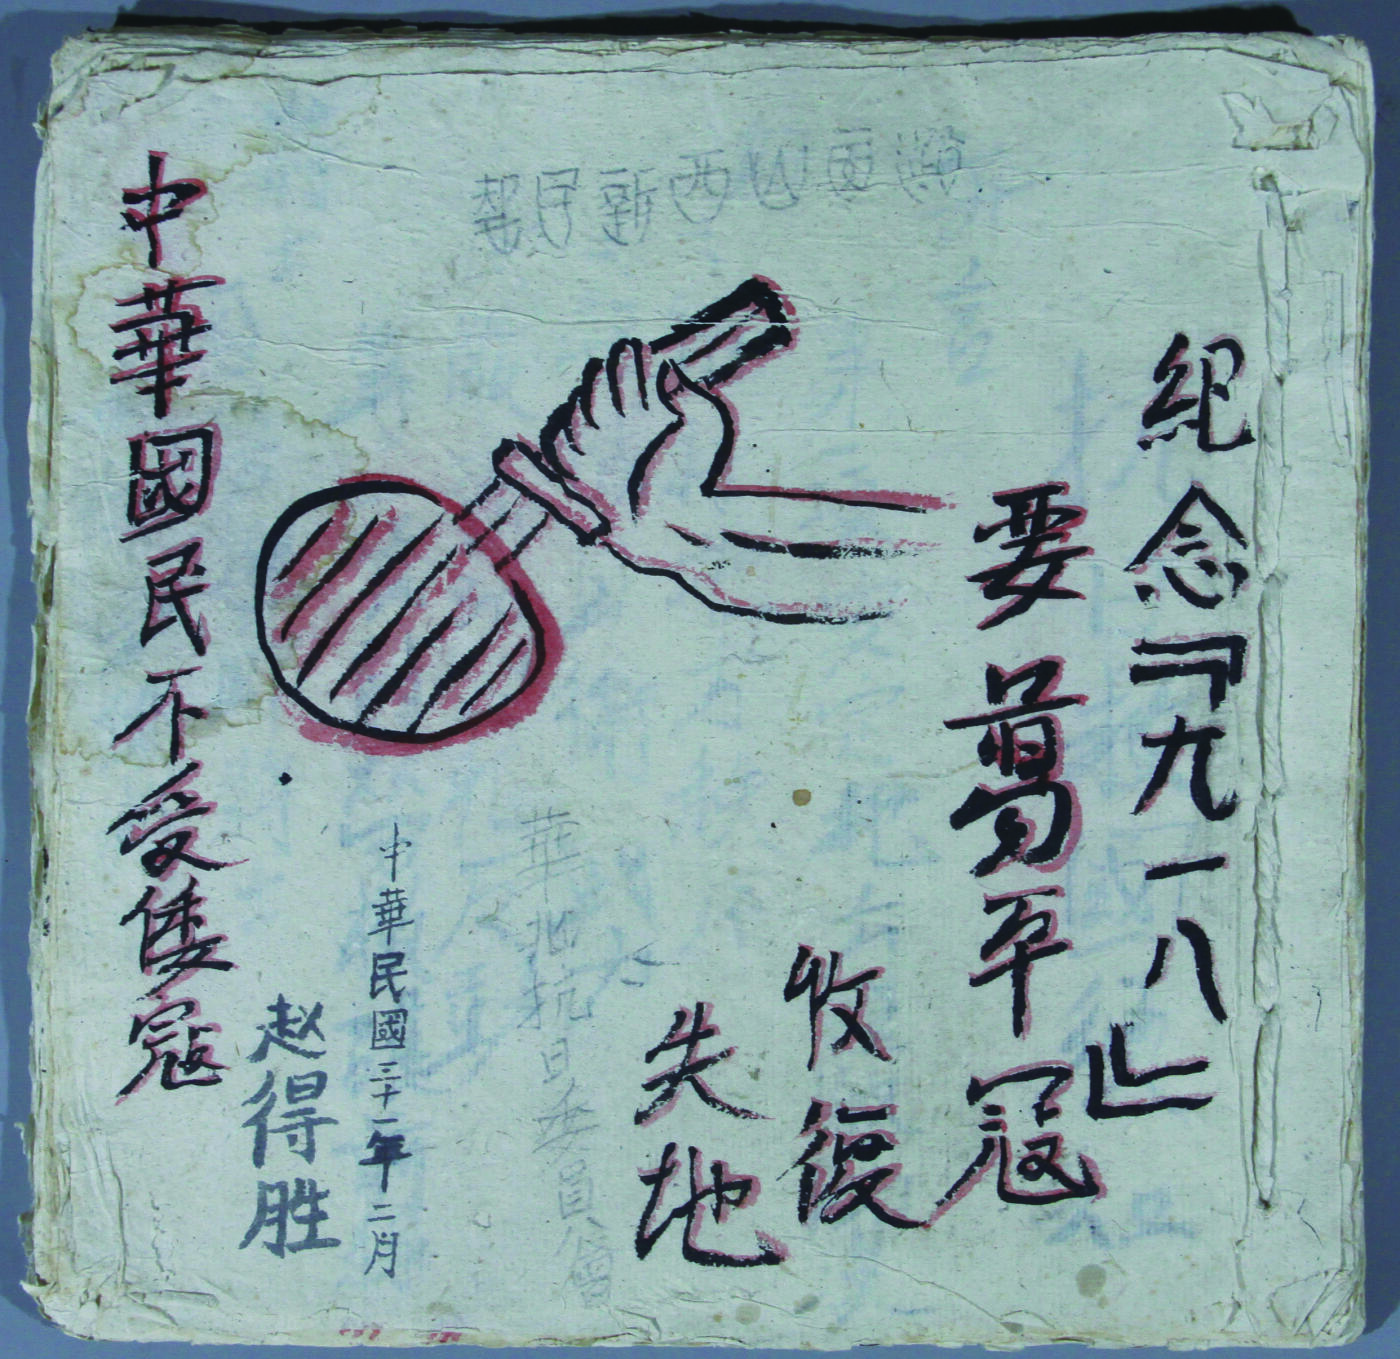 紀念『九一八』
要蕩平冦
收復
失地
華北抗日委員會
中華民國三十一年二月
赵得胜
中華國民不受倭寇